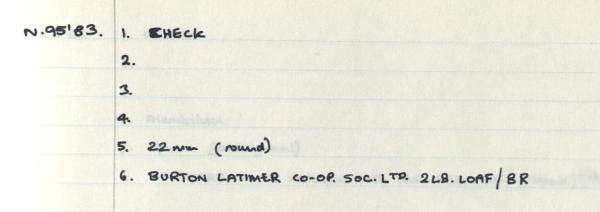 N.95'83. 1. CHECK
2.
3.
4.
5. 22mm (round)
6. BURTON LATIMER CO-OP. SOC. LTD. 2LB. LOAF/BR